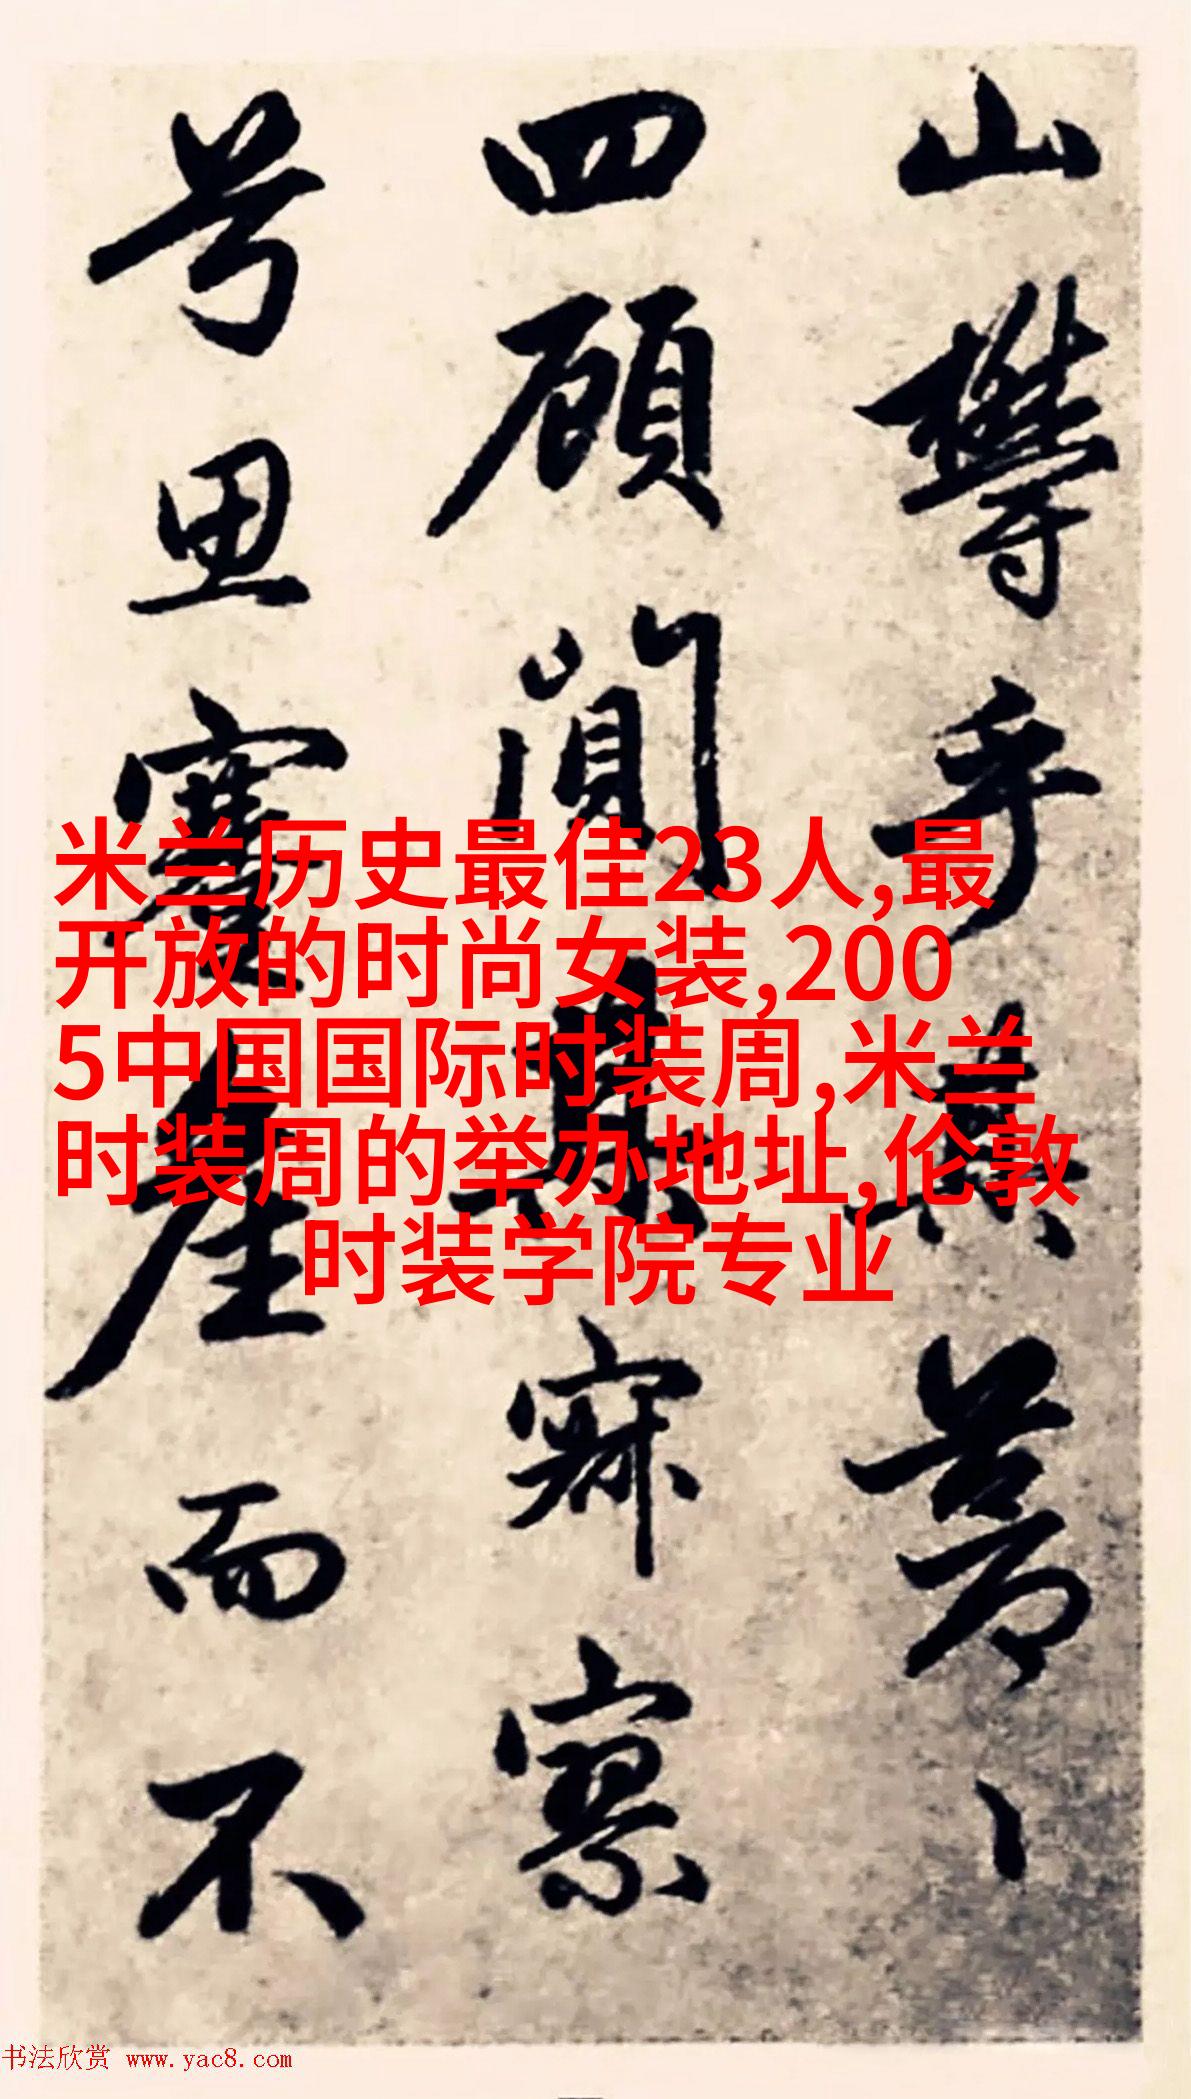 山礬乎其萼丶
四顧闃其寂寥
号思蹇產而不
米兰历史最佳23人,最
开放的时尚女装,200
5中国国际时装周,米兰
时装周的举办地址,伦敦
时装学院专业
书法欣赏 www.yac8.com